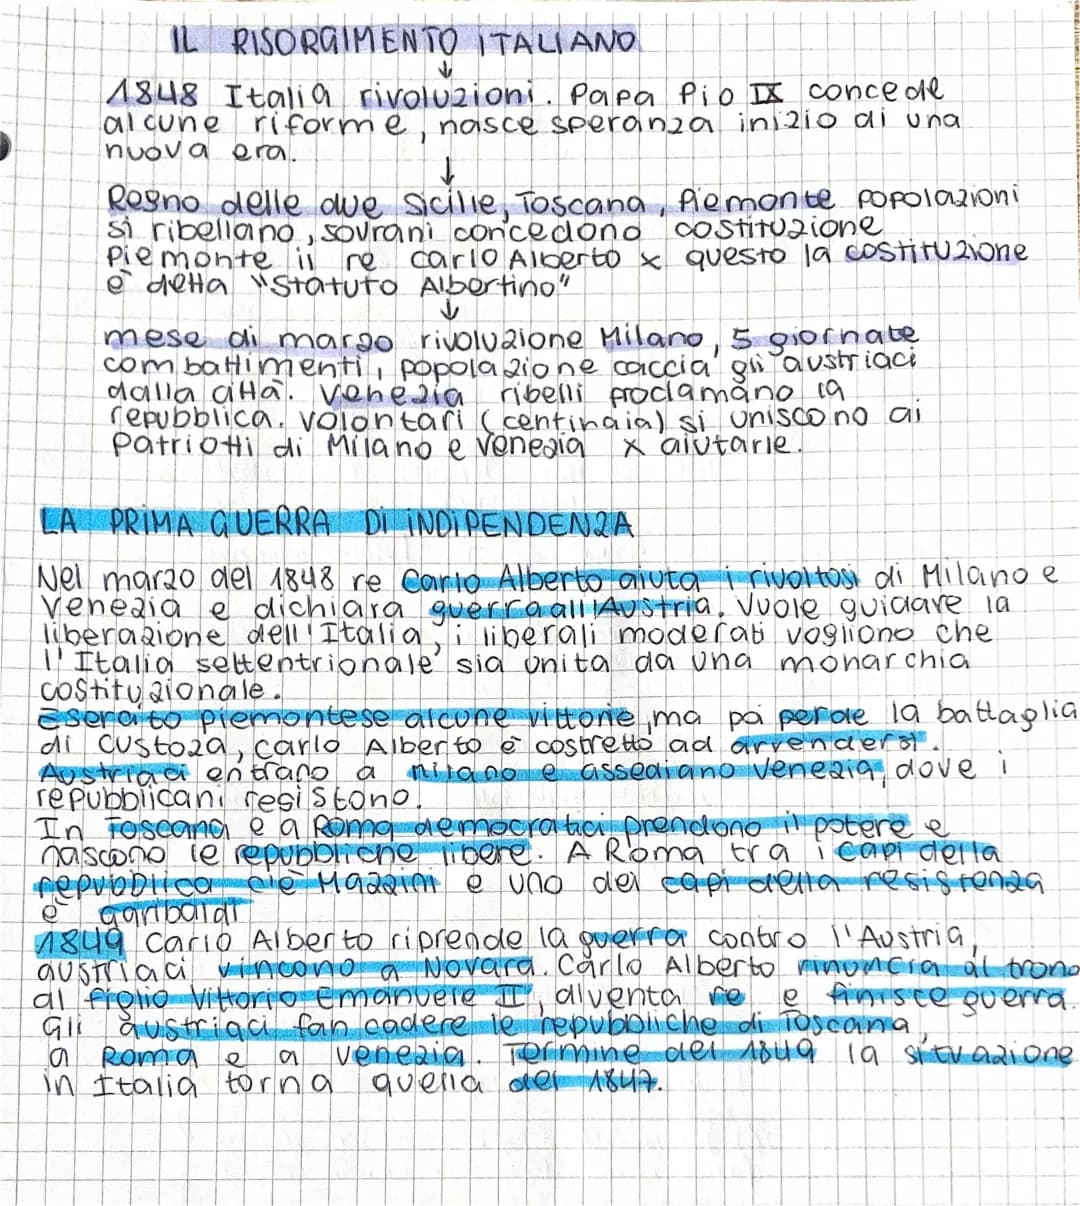 IL RISORGIMENTO ITALIANO
↓
1848 Italia rivoluzioni. Papa Pio IX concede
alcune riforme, nasce speranza inizio di una
nuova era.
↓
Regno delle due Sicilie, Toscana, Piemonte popolazioni
si ribellano, sovrani concedono costituzione
Piemonte il re Carlo Alberto x questo la costituzione
è detta "Statuto Albertino"
↓
mese di marzo rivoluzione Milano, 5 giornate
combattimenti, popolazione caccia gli austriaci
dalla città. Venezia ribelli proclamano la
repubblica. Volontari (centinaia) si uniscono ai
patriotti di Milano e Venezia x aiutarle.
LA PRIMA GUERRA DI INDIPENDENZA
Nel marzo del 1848 re Carlo Alberto aiuta i rivoltosi di Milano e
Venezia e dichiara guerra all'Austria. Vuole guidare la
liberazione dell'Italia, i liberali moderati vogliono che
l'Italia settentrionale sia unita da una monarchia
costituzionale.
Esercito piemontese alcune vittorie, ma poi perde la battaglia
di Custoza, Carlo Alberto è costretto ad arrendersi.
Austriaci entrano a Milano e assediano Venezia, dove i
repubblicani resistono.
In Toscana e a Roma democratici prendono il potere e
nascono le repubbliche libere. A Roma tra i capi della
repubblica c'è Mazzini e uno dei capi della resistenza
è Garibaldi
1849 Carlo Alberto riprende la guerra contro l'Austria,
austriaci vincono a Novara. Carlo Alberto rinuncia al trono
al figlio Vittorio Emanuele II, diventa re e finisce guerra.
Gli austriaci fan cadere le repubbliche di Toscana,
a Roma e a Venezia. Termine del 1849 la situazione
in Italia torna quella del 1847.